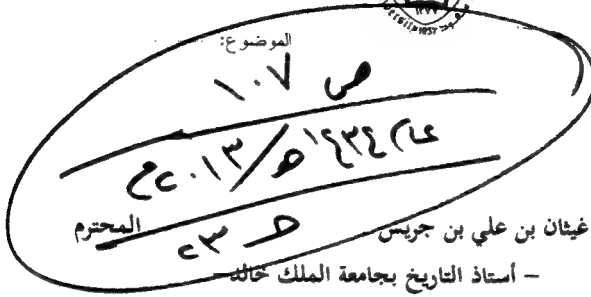 ١٣٧٧
1957
الموضوع:
ص ١٠٧
عام ١٤٣٤هـ/٢٠١٣م
غيثان بن علي بن جريس المحترم
ح ٢٣
– أستاذ التاريخ بجامعة الملك خالد –